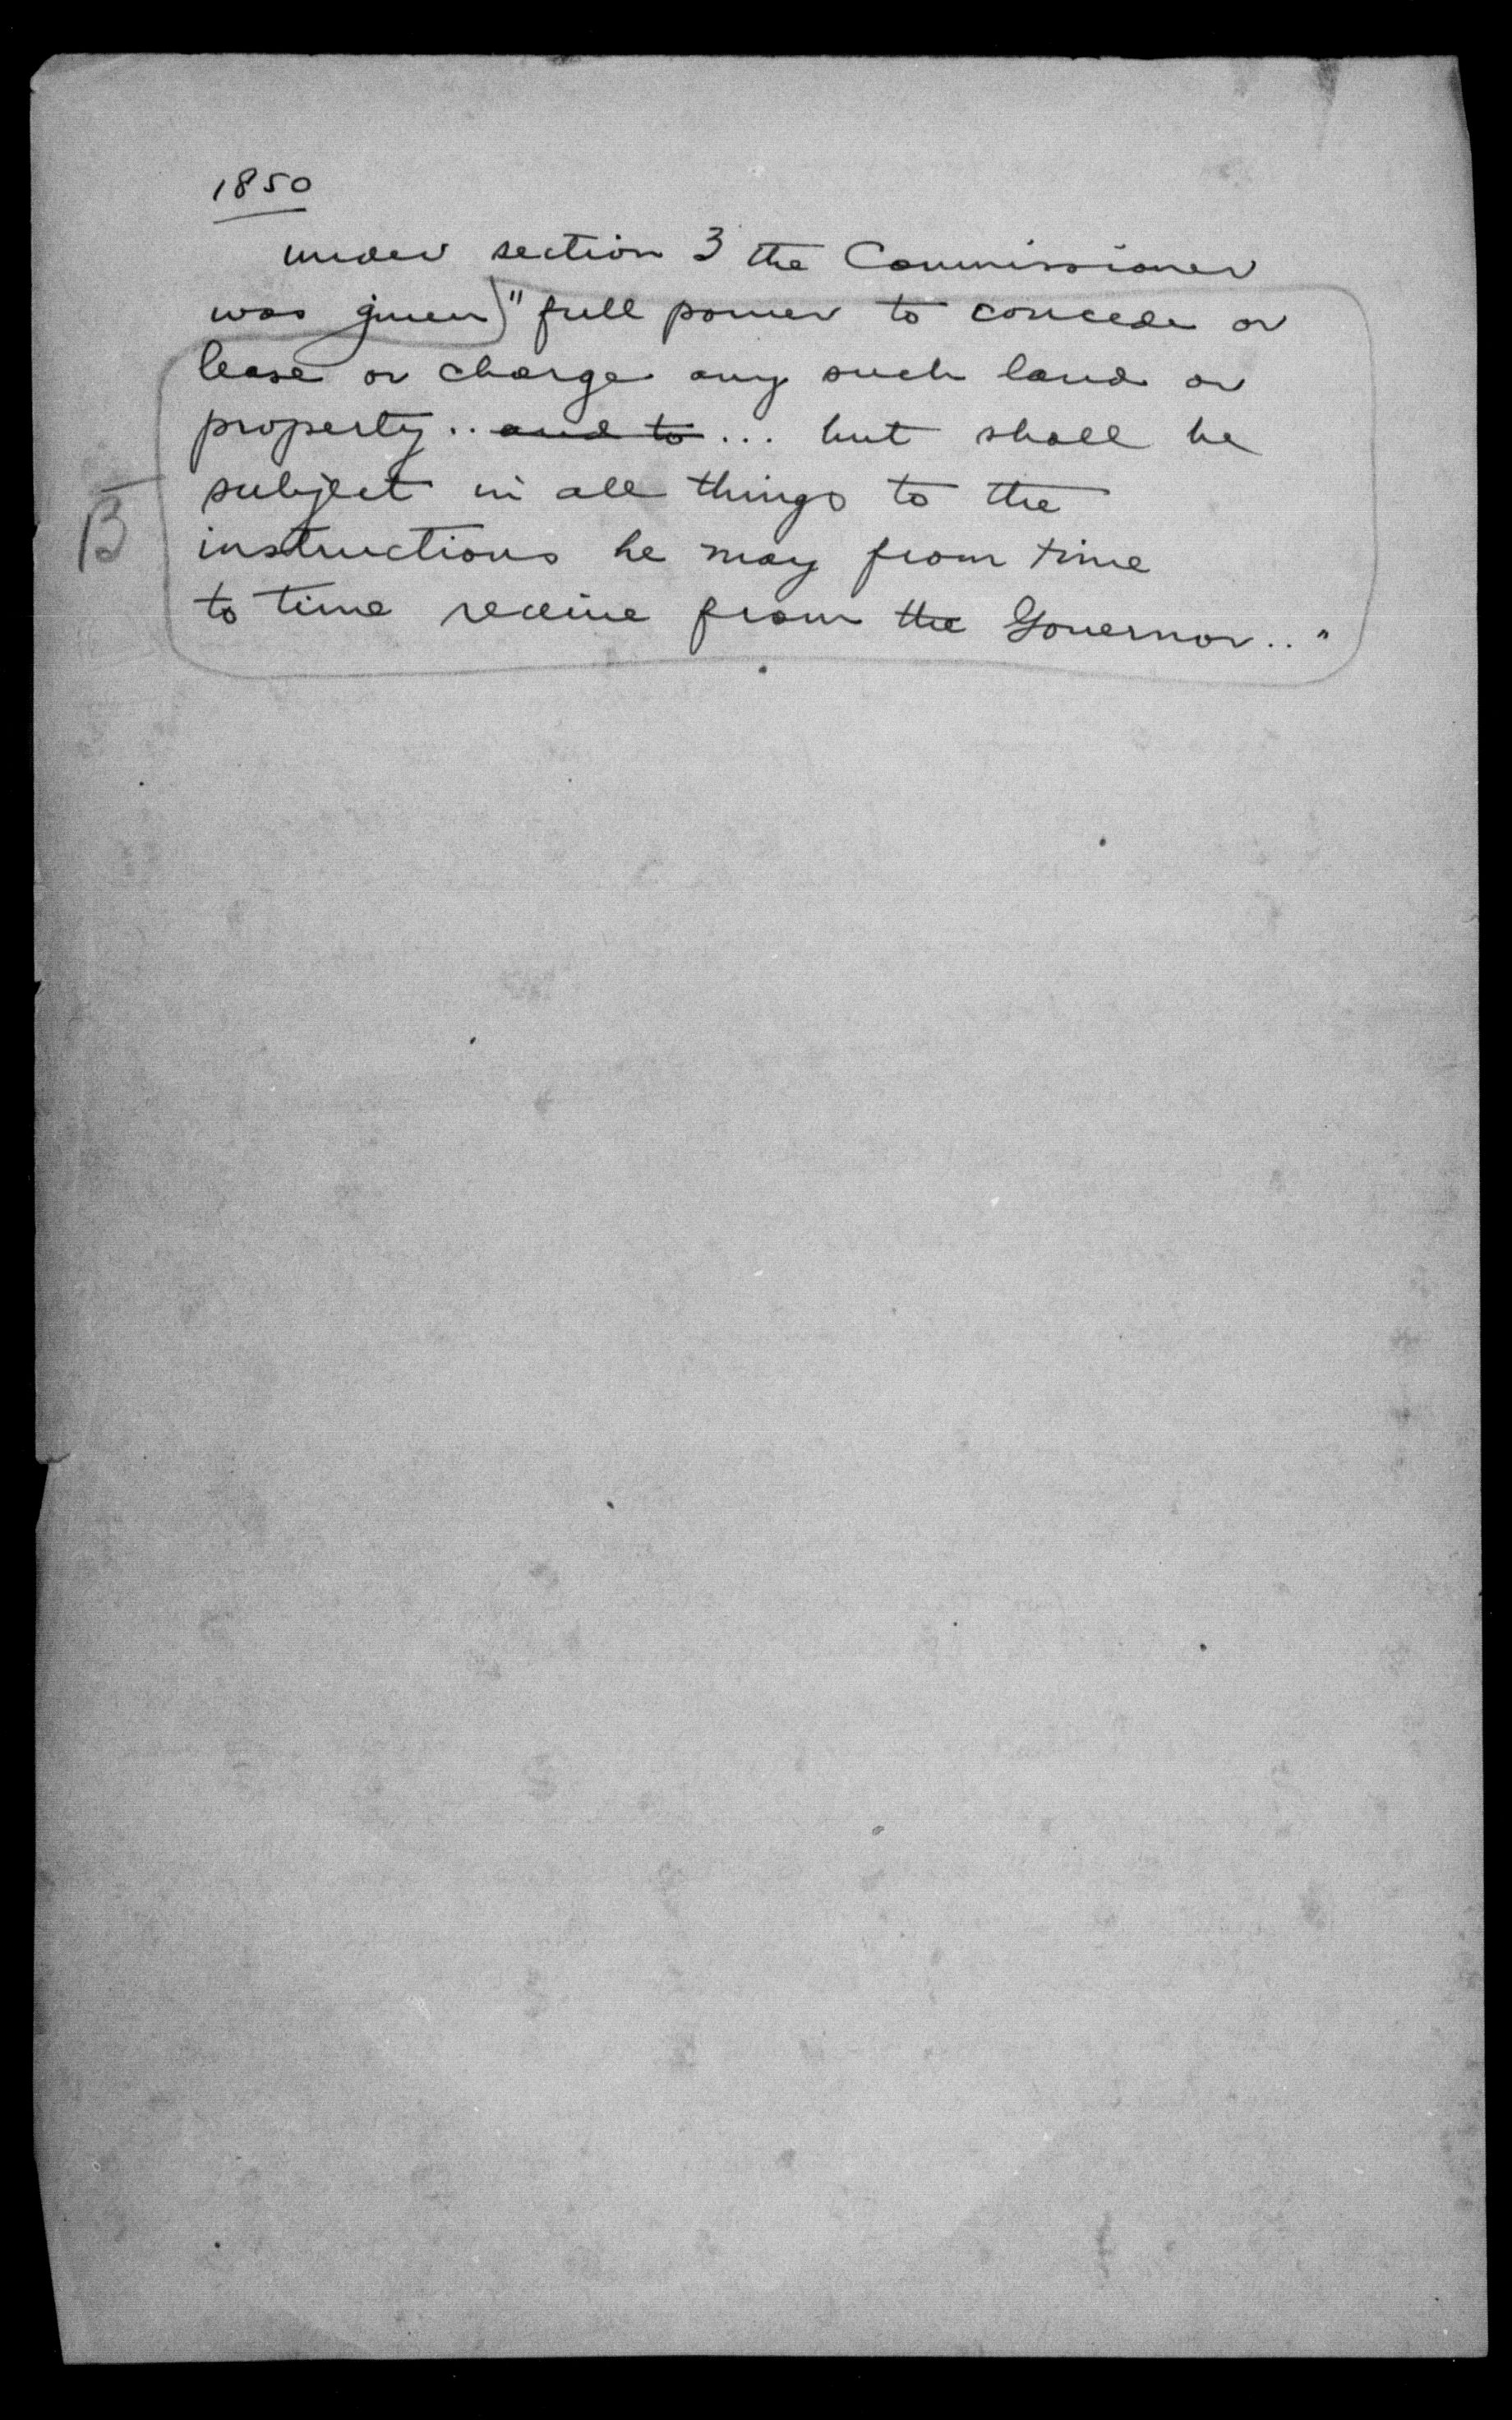 1850
under section 3 the Commissioner
was given) "full power to concede or
lease or charge any such land or
property .. and to ... but shall be
subject in all things to the
B
instructions he may from time
to time receive from the Governor .. "